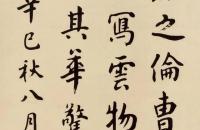 之倫曹
寫雲物
其華驚
辛巳秋八月